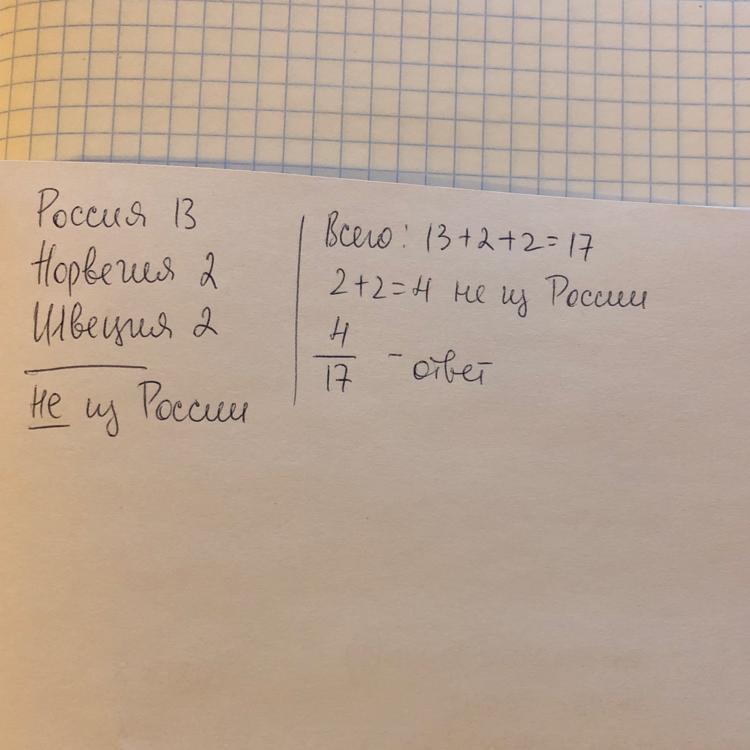 Россия 13
Норвегия 2
Швеция 2
не из России
Всего: 13+2+2=17
2+2=4 не из России
4
17
- ответ